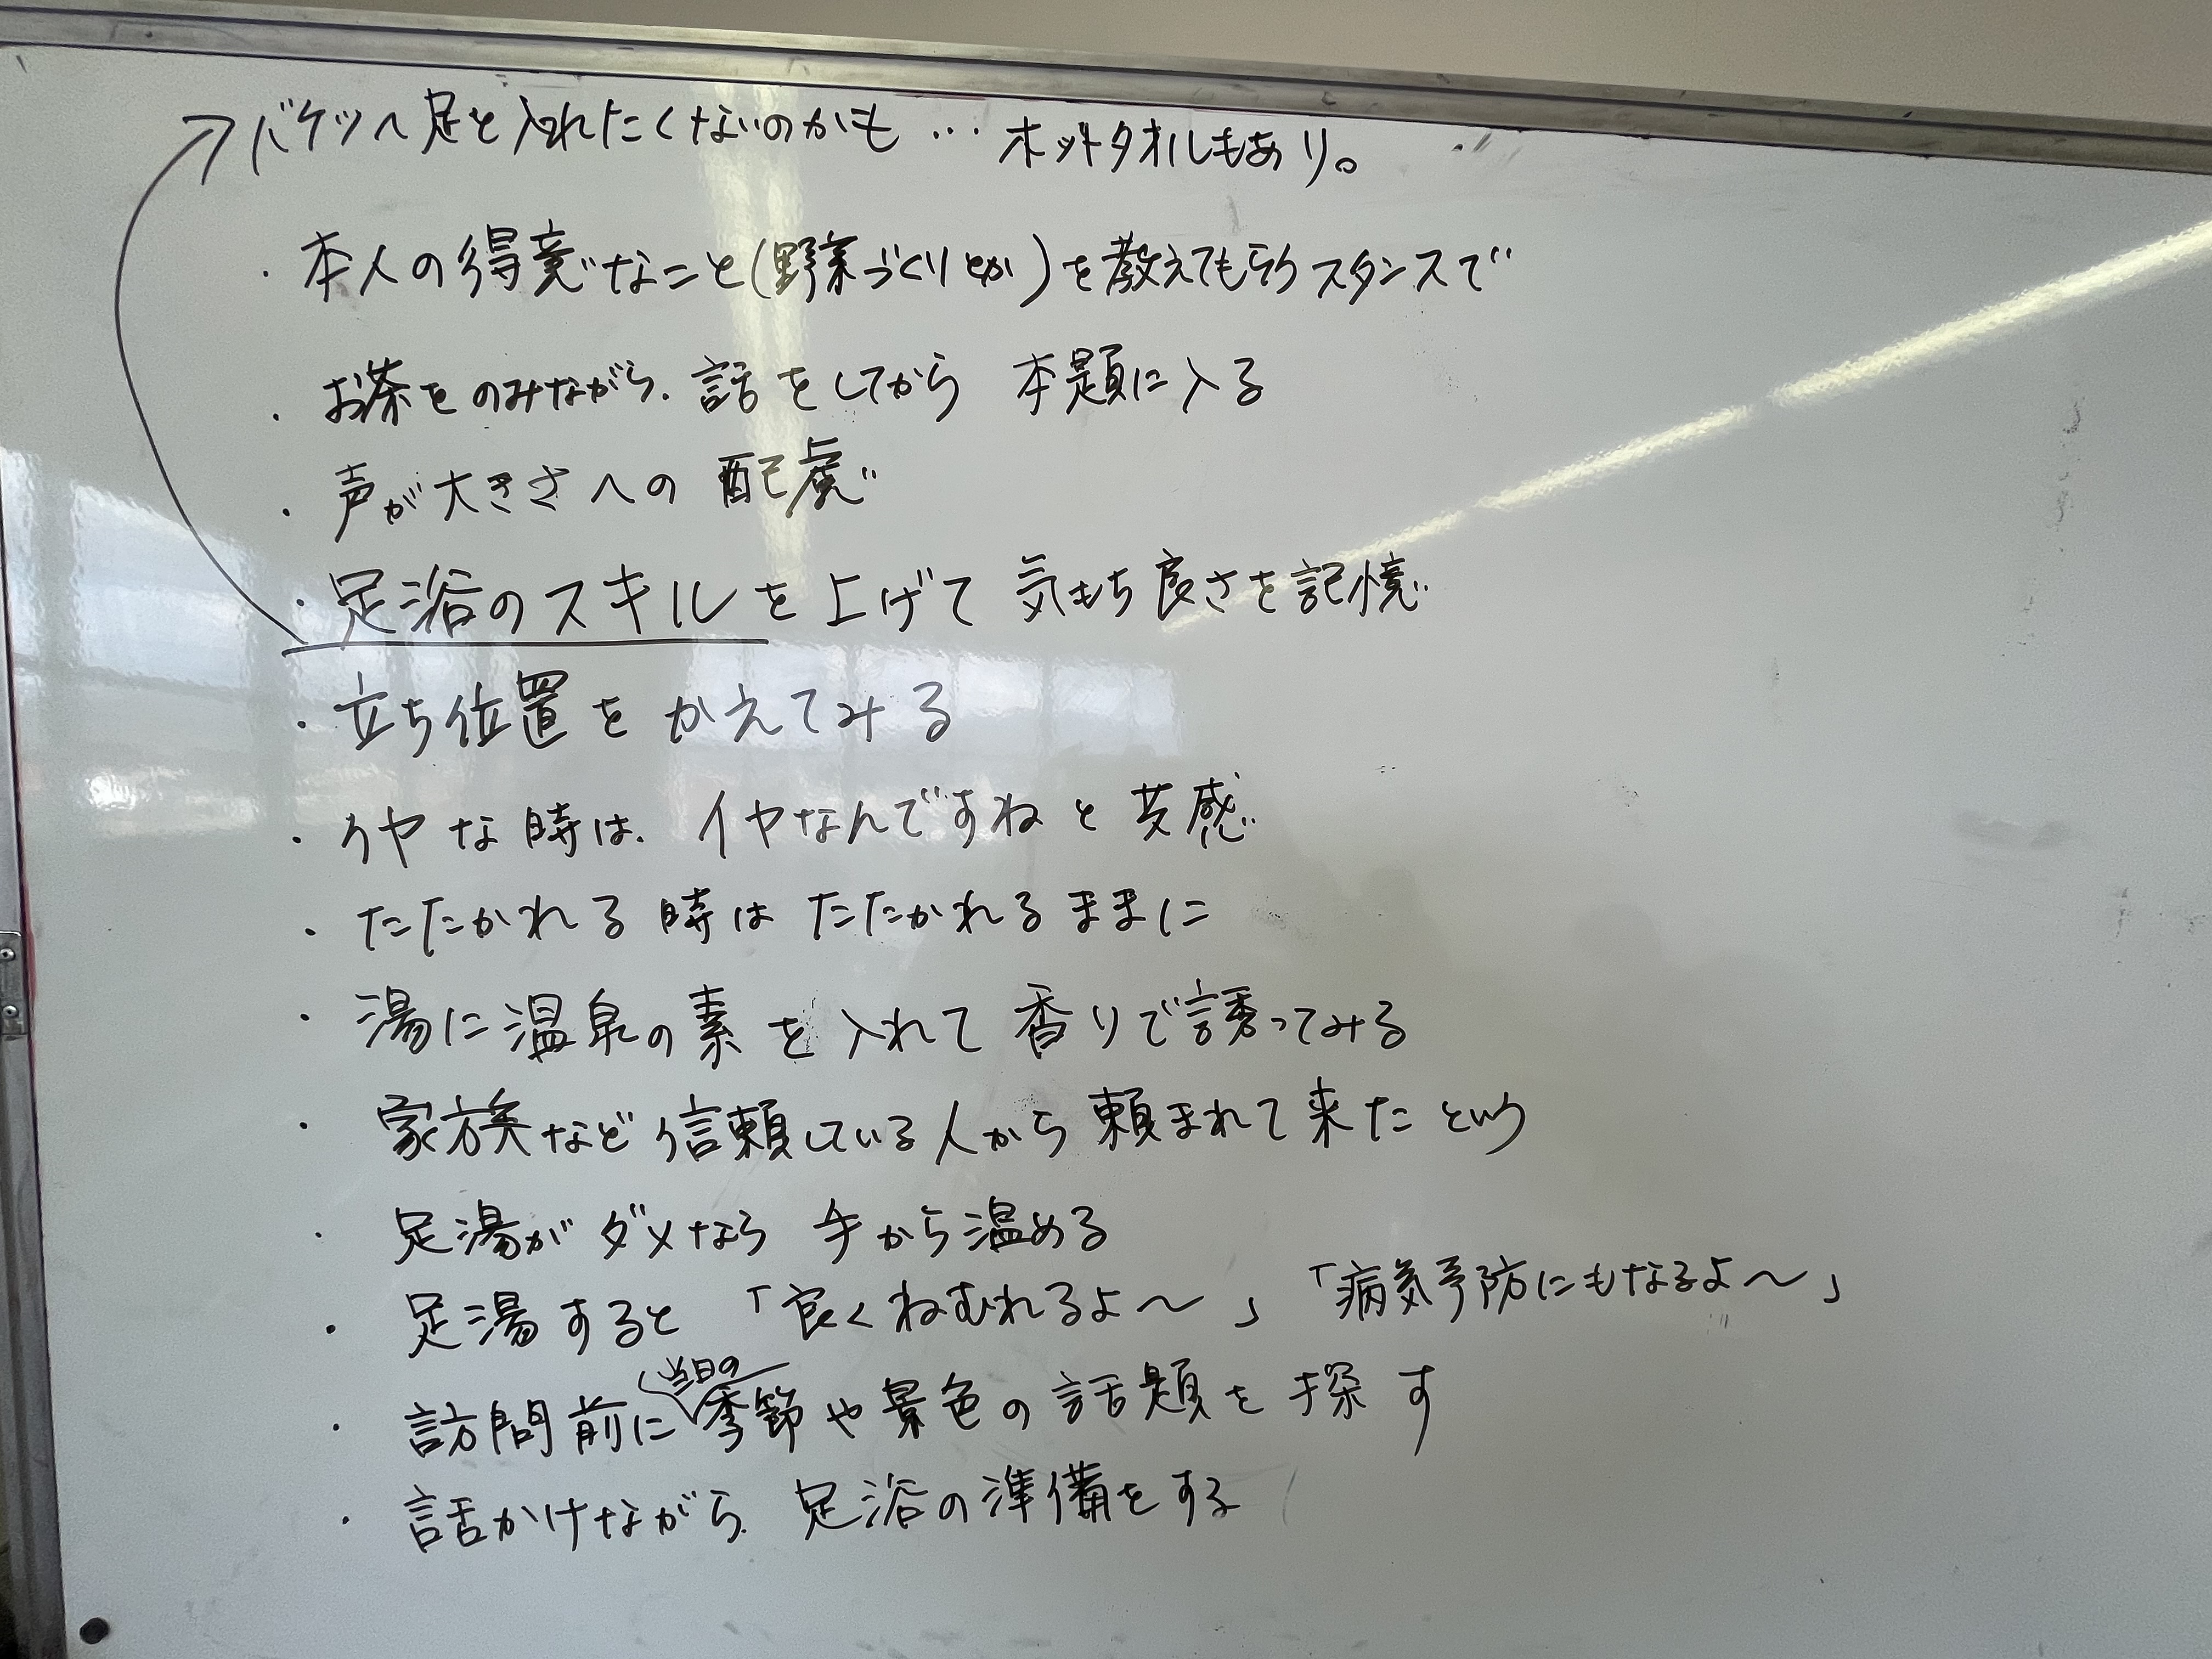 バケツへ足を入れたくないのかも … ホットタオルもあり。
・本人の得意なこと(野菜づくりとか)を教えてもらうスタンスで
・お茶をのみながら、話をしてから 本題に入る
・声が大きさへの 配慮
・足浴のスキルを上げて 気もち良さを記憶
・立ち位置を かえてみる
・イヤな時は、イヤなんですねと 共感
・たたかれる時は たたかれるままに
・湯に温泉の素を入れて 香りで誘ってみる
・家族など信頼している人から頼まれて来た という
・足湯がダメなら 手から温める
・足湯すると 「良くねむれるよ〜」 「病気予防にもなるよ〜」
・訪問前に当日の季節や景色の話題を探す
・話かけながら、足浴の準備をする